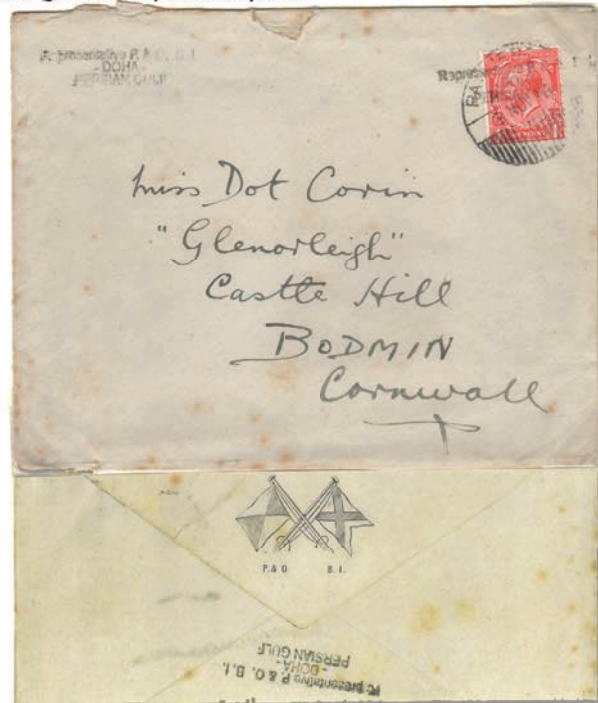 Representative P. & O. B.I.
- DOHA -
PERSIAN GULF
Miss Dot Corin
"Glenorleigh"
Castle Hill
BODMIN
Cornwall
P. & O. B. I.
Representative P. & O. B.I.
- DOHA -
PERSIAN GULF